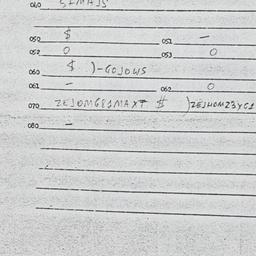 040 SIMAJS
050 $ 051 -
052 0 053 0
060 $ )-GOJOWS
061 - 062 0
070 ZEJOMG81MAXT $ )ZEJHOMZ3YG1
080 -